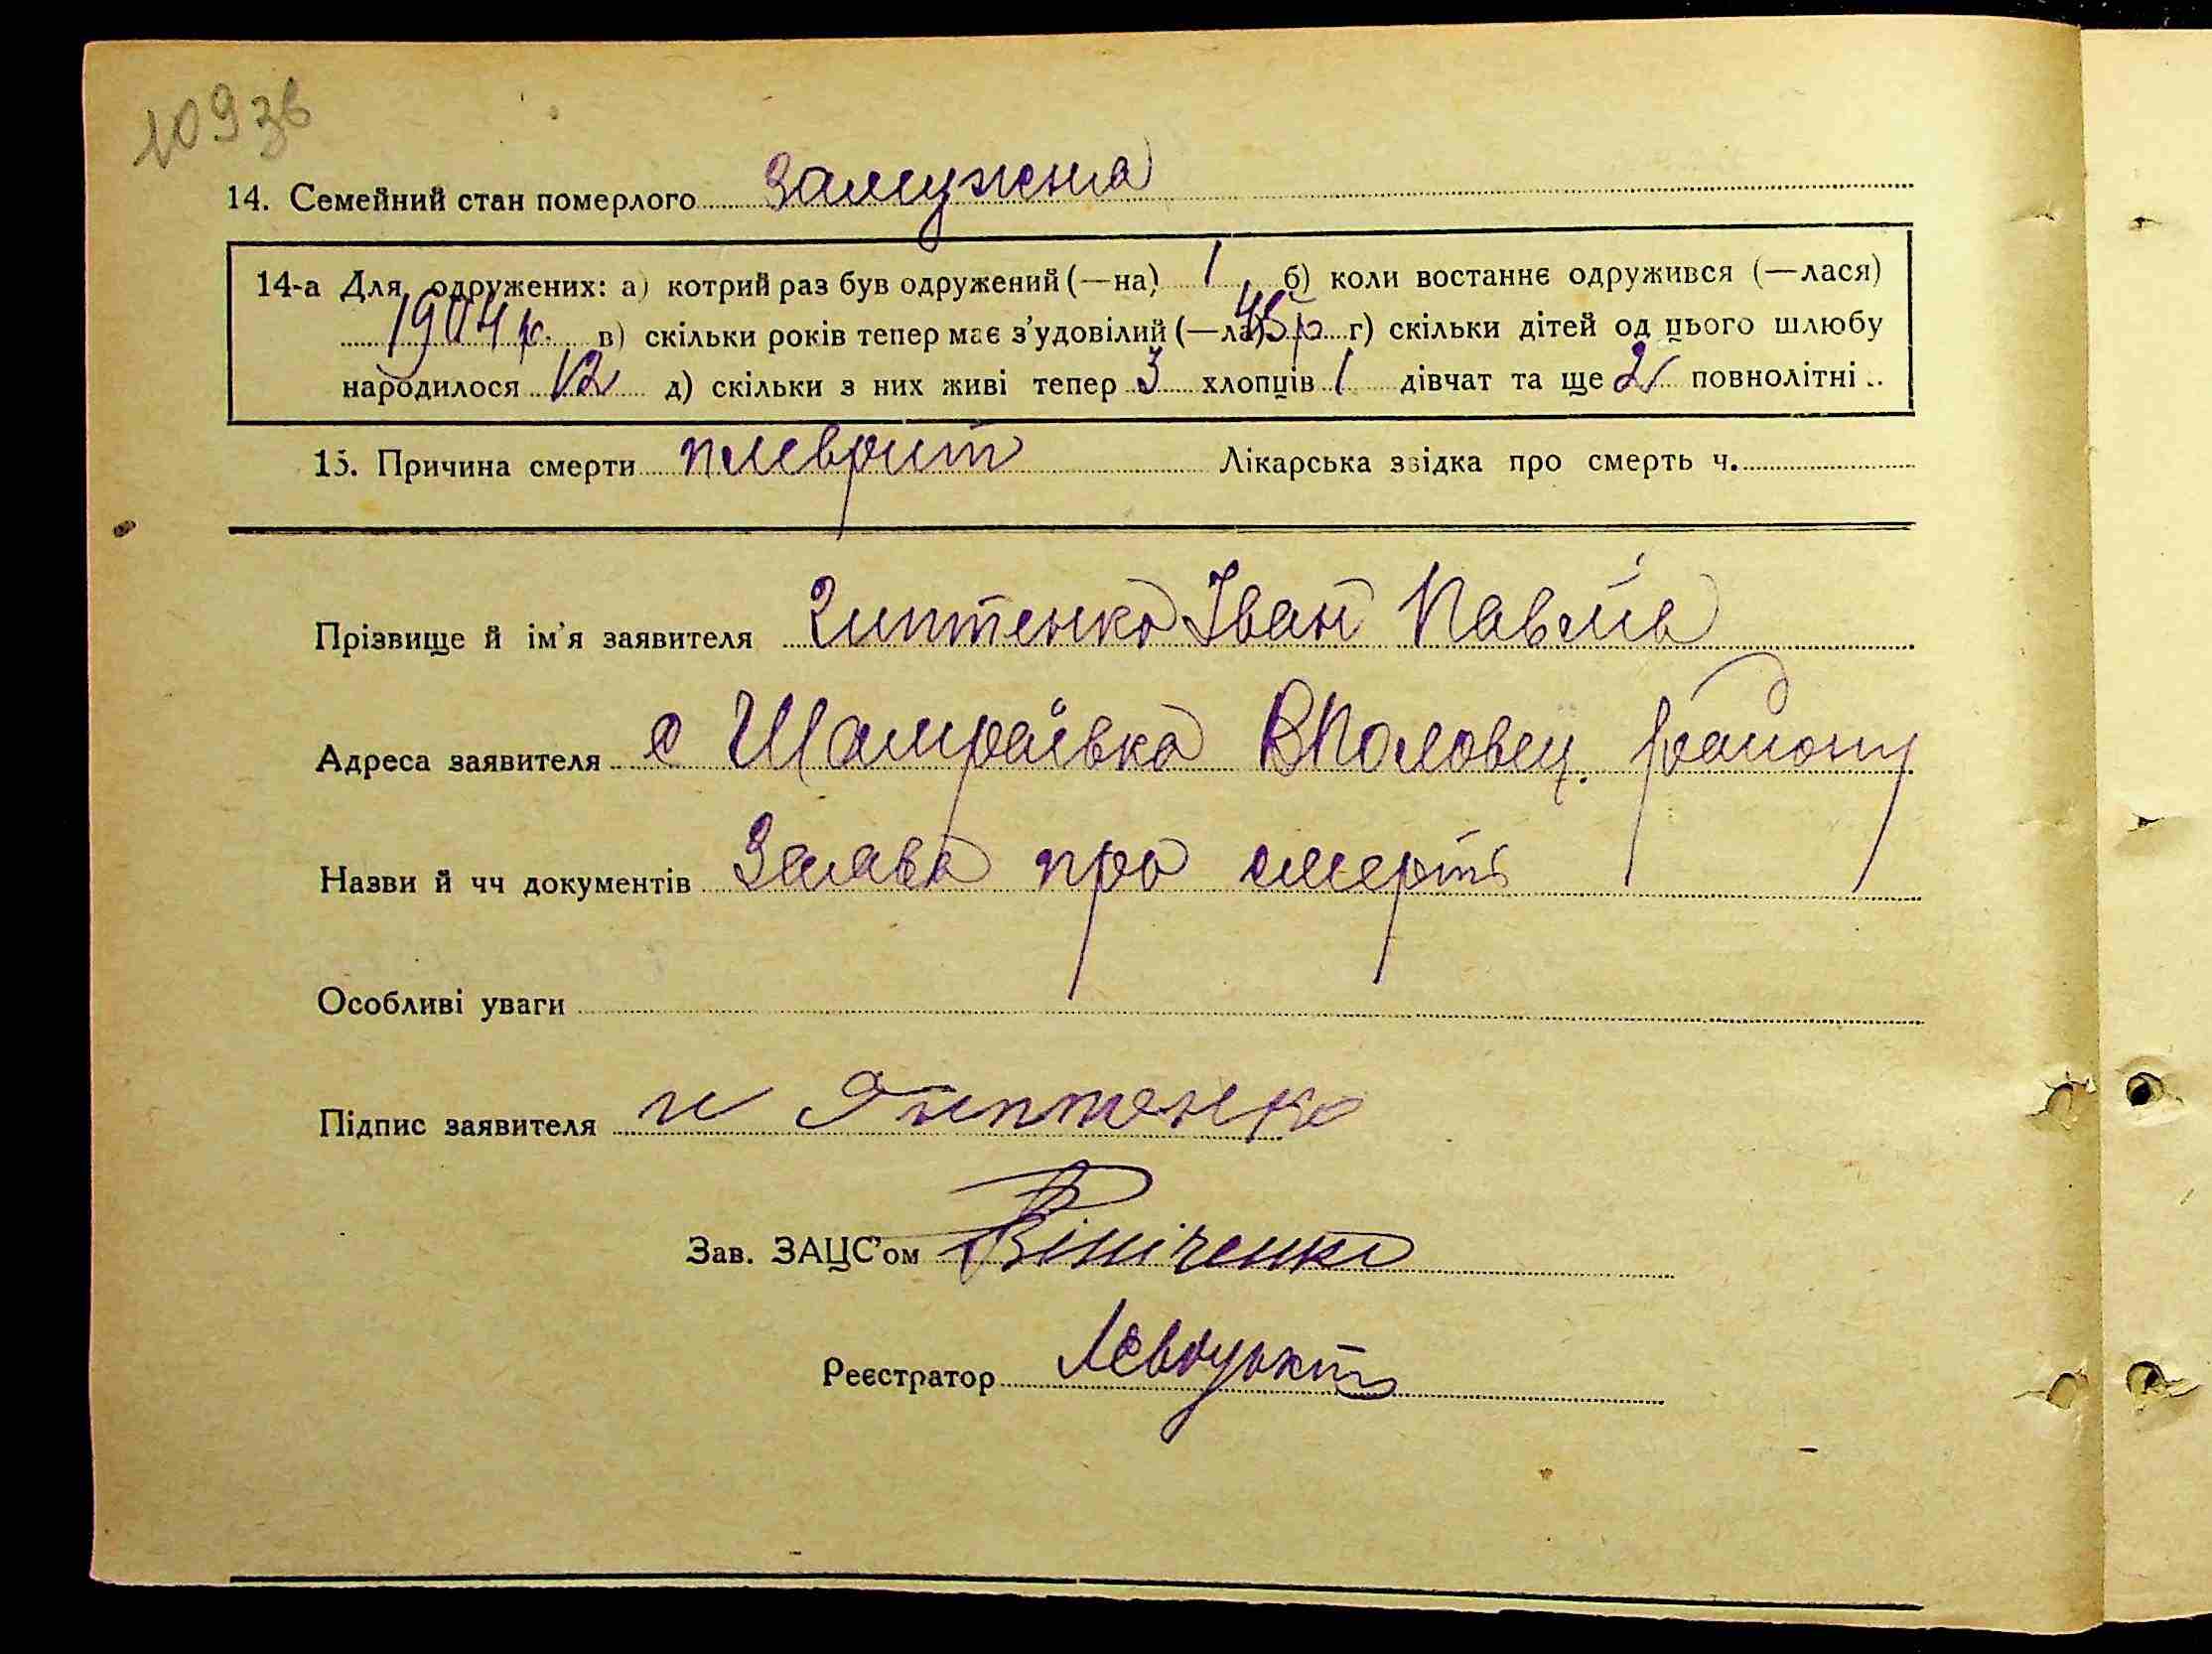 109 зв
14. Семейний стан померлого замужена
14-а Для одружених: а) котрий раз був одружений (—на) 1 б) коли востаннє одружився (—лася)
1904 р. в) скільки років тепер має з'удовілий (—ла) 45 р г) скільки дітей од цього шлюбу
народилося 12 д) скільки з них живі тепер 3 хлопців 1 дівчат та ще 2 повнолітні..
15. Причина смерти плеврит Лікарська звідка про смерть ч.
Прізвище й ім'я заявителя Іван Павлів
Адреса заявителя с Шамраївка ВПоловец. району
Назви й чч документів Заява про смерть
Особливі уваги
Підпис заявителя
Зав. ЗАЦС'ом Вініченко
Реєстратор